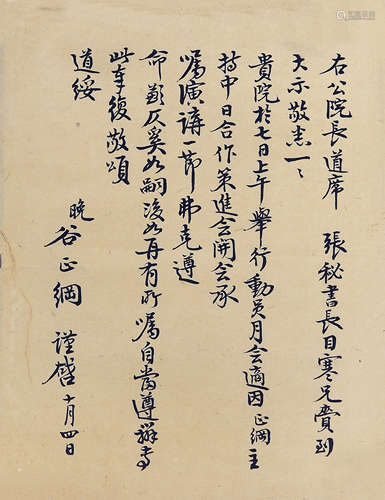 右公院長道席 張秘書長目寒兄賫到
大示敬悉一一
貴院於七日上午舉行動員月會適因正綱主
持中日合作策進會開會承
囑演講一節弗克遵
命歉仄奚如嗣後如再有所囑自當遵辦專
此奉復敬頌
道綏
晚 谷正綱 謹啓 十月四日